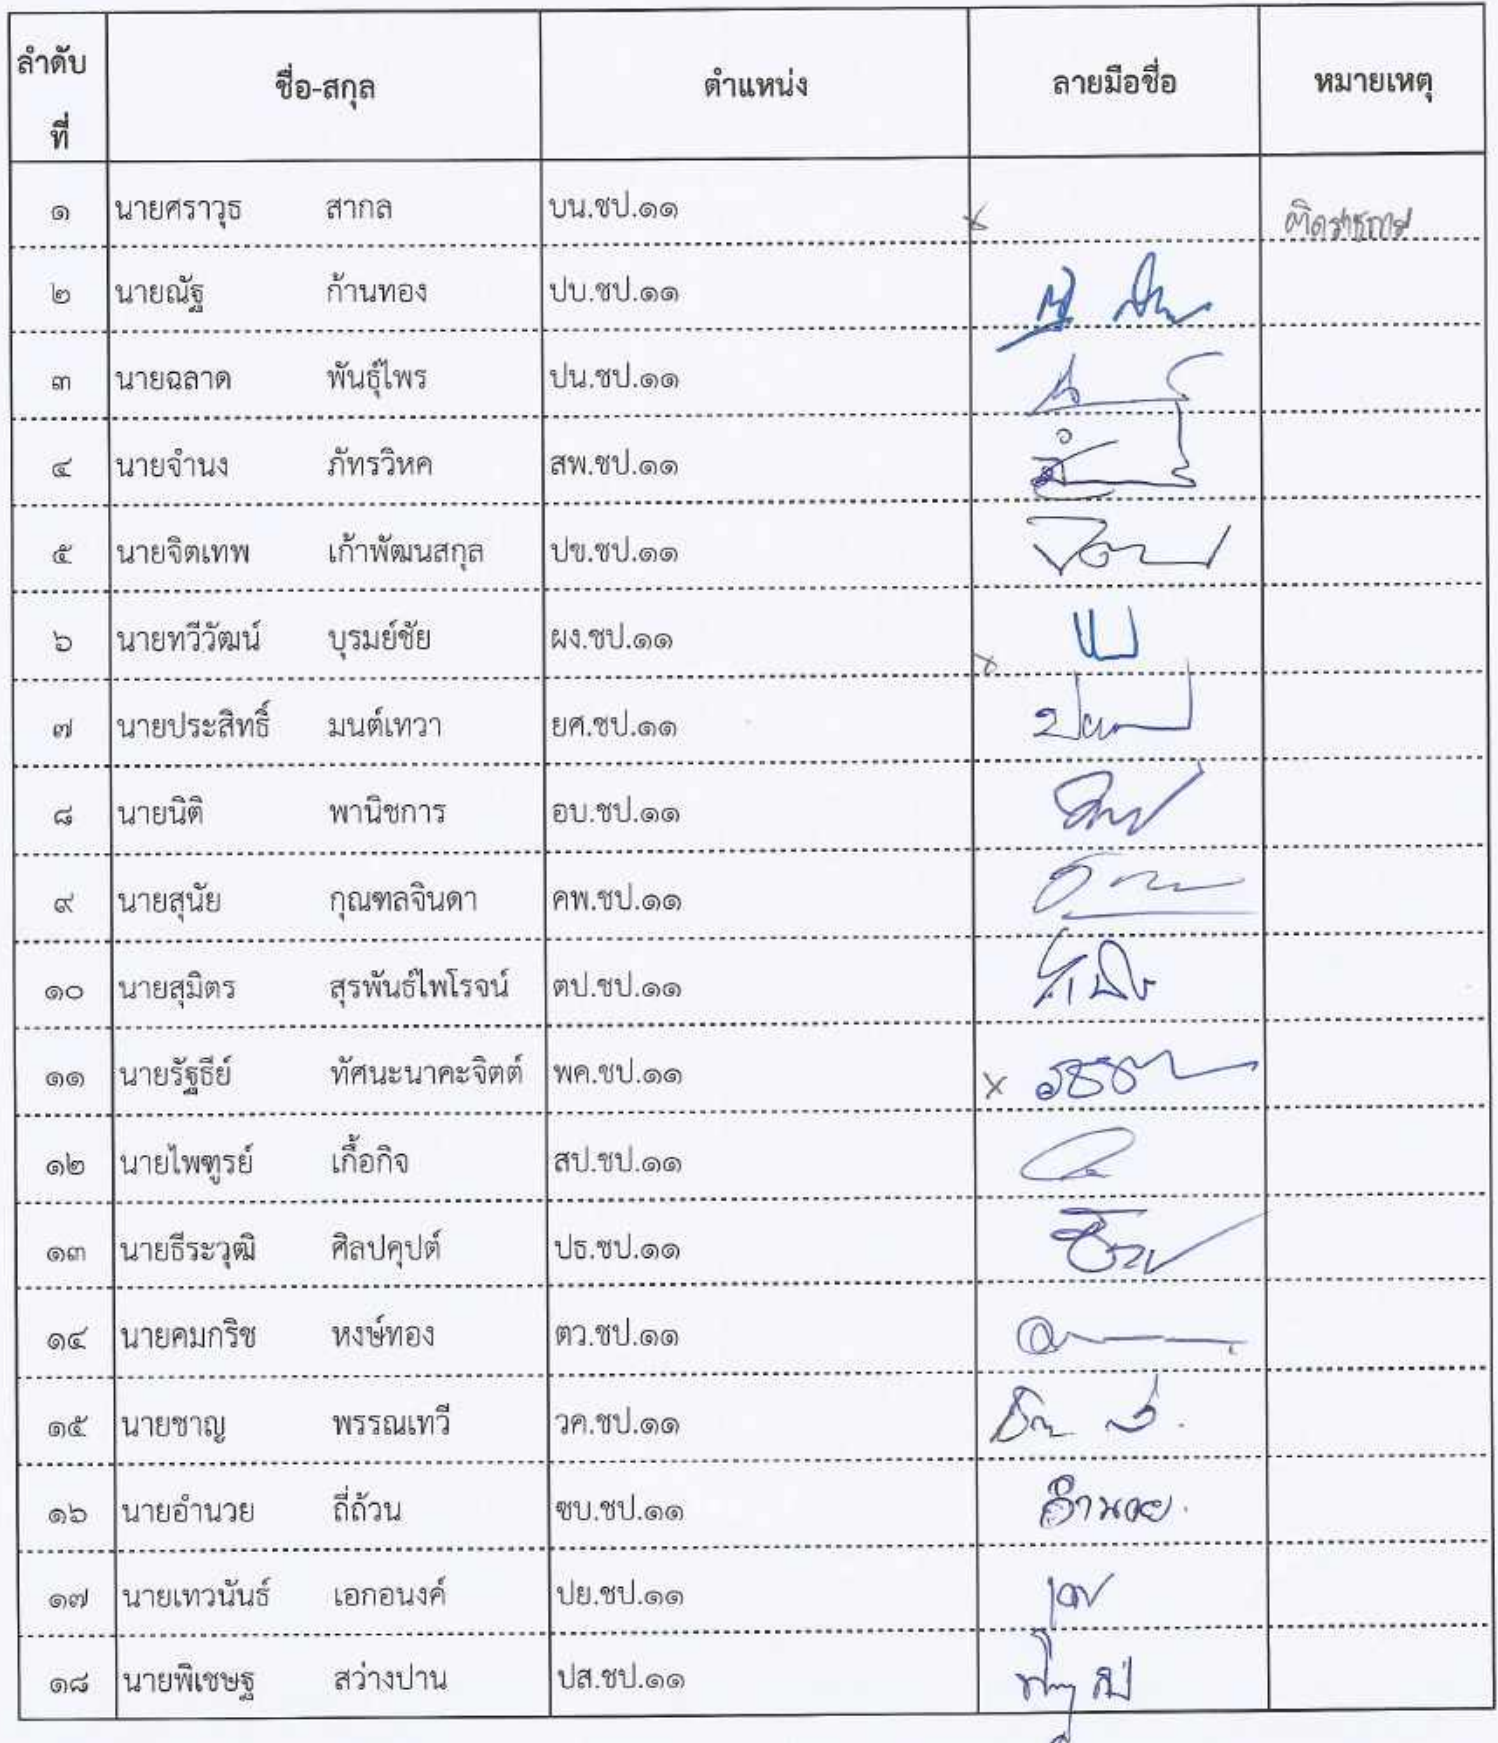 ลำดับที่ ชื่อ-สกุล ตำแหน่ง ลายมือชื่อ หมายเหตุ
๑ นายศราวุธ สากล บน.ชป.๑๑ x ติดราชการ
๒ นายณัฐ ก้านทอง ปบ.ชป.๑๑
๓ นายฉลาด พันธุ์ไพร ปน.ชป.๑๑
๔ นายจำนง ภัทรวิหค สพ.ชป.๑๑
๕ นายจิตเทพ เก้าพัฒนสกุล ปข.ชป.๑๑
๖ นายทวีวัฒน์ บุรมย์ชัย ผง.ชป.๑๑ x
๗ นายประสิทธิ์ มนต์เทวา ยศ.ชป.๑๑
๘ นายนิติ พานิชการ อบ.ชป.๑๑
๙ นายสุนัย กุณฑลจินดา คพ.ชป.๑๑
๑๐ นายสุมิตร สุรพันธ์ไพโรจน์ ตป.ชป.๑๑
๑๑ นายรัฐธีย์ ทัศนะนาคะจิตต์ พค.ชป.๑๑ x
๑๒ นายไพฑูรย์ เกื้อกิจ สป.ชป.๑๑
๑๓ นายธีระวุฒิ ศิลปคุปต์ ปธ.ชป.๑๑
๑๔ นายคมกริช หงษ์ทอง ตว.ชป.๑๑
๑๕ นายชาญ พรรณเทวี วค.ชป.๑๑
๑๖ นายอำนวย ถี่ถ้วน ชบ.ชป.๑๑ อำนวย.
๑๗ นายเทวนันธ์ เอกอนงค์ ปย.ชป.๑๑
๑๘ นายพิเชษฐ สว่างปาน ปส.ชป.๑๑